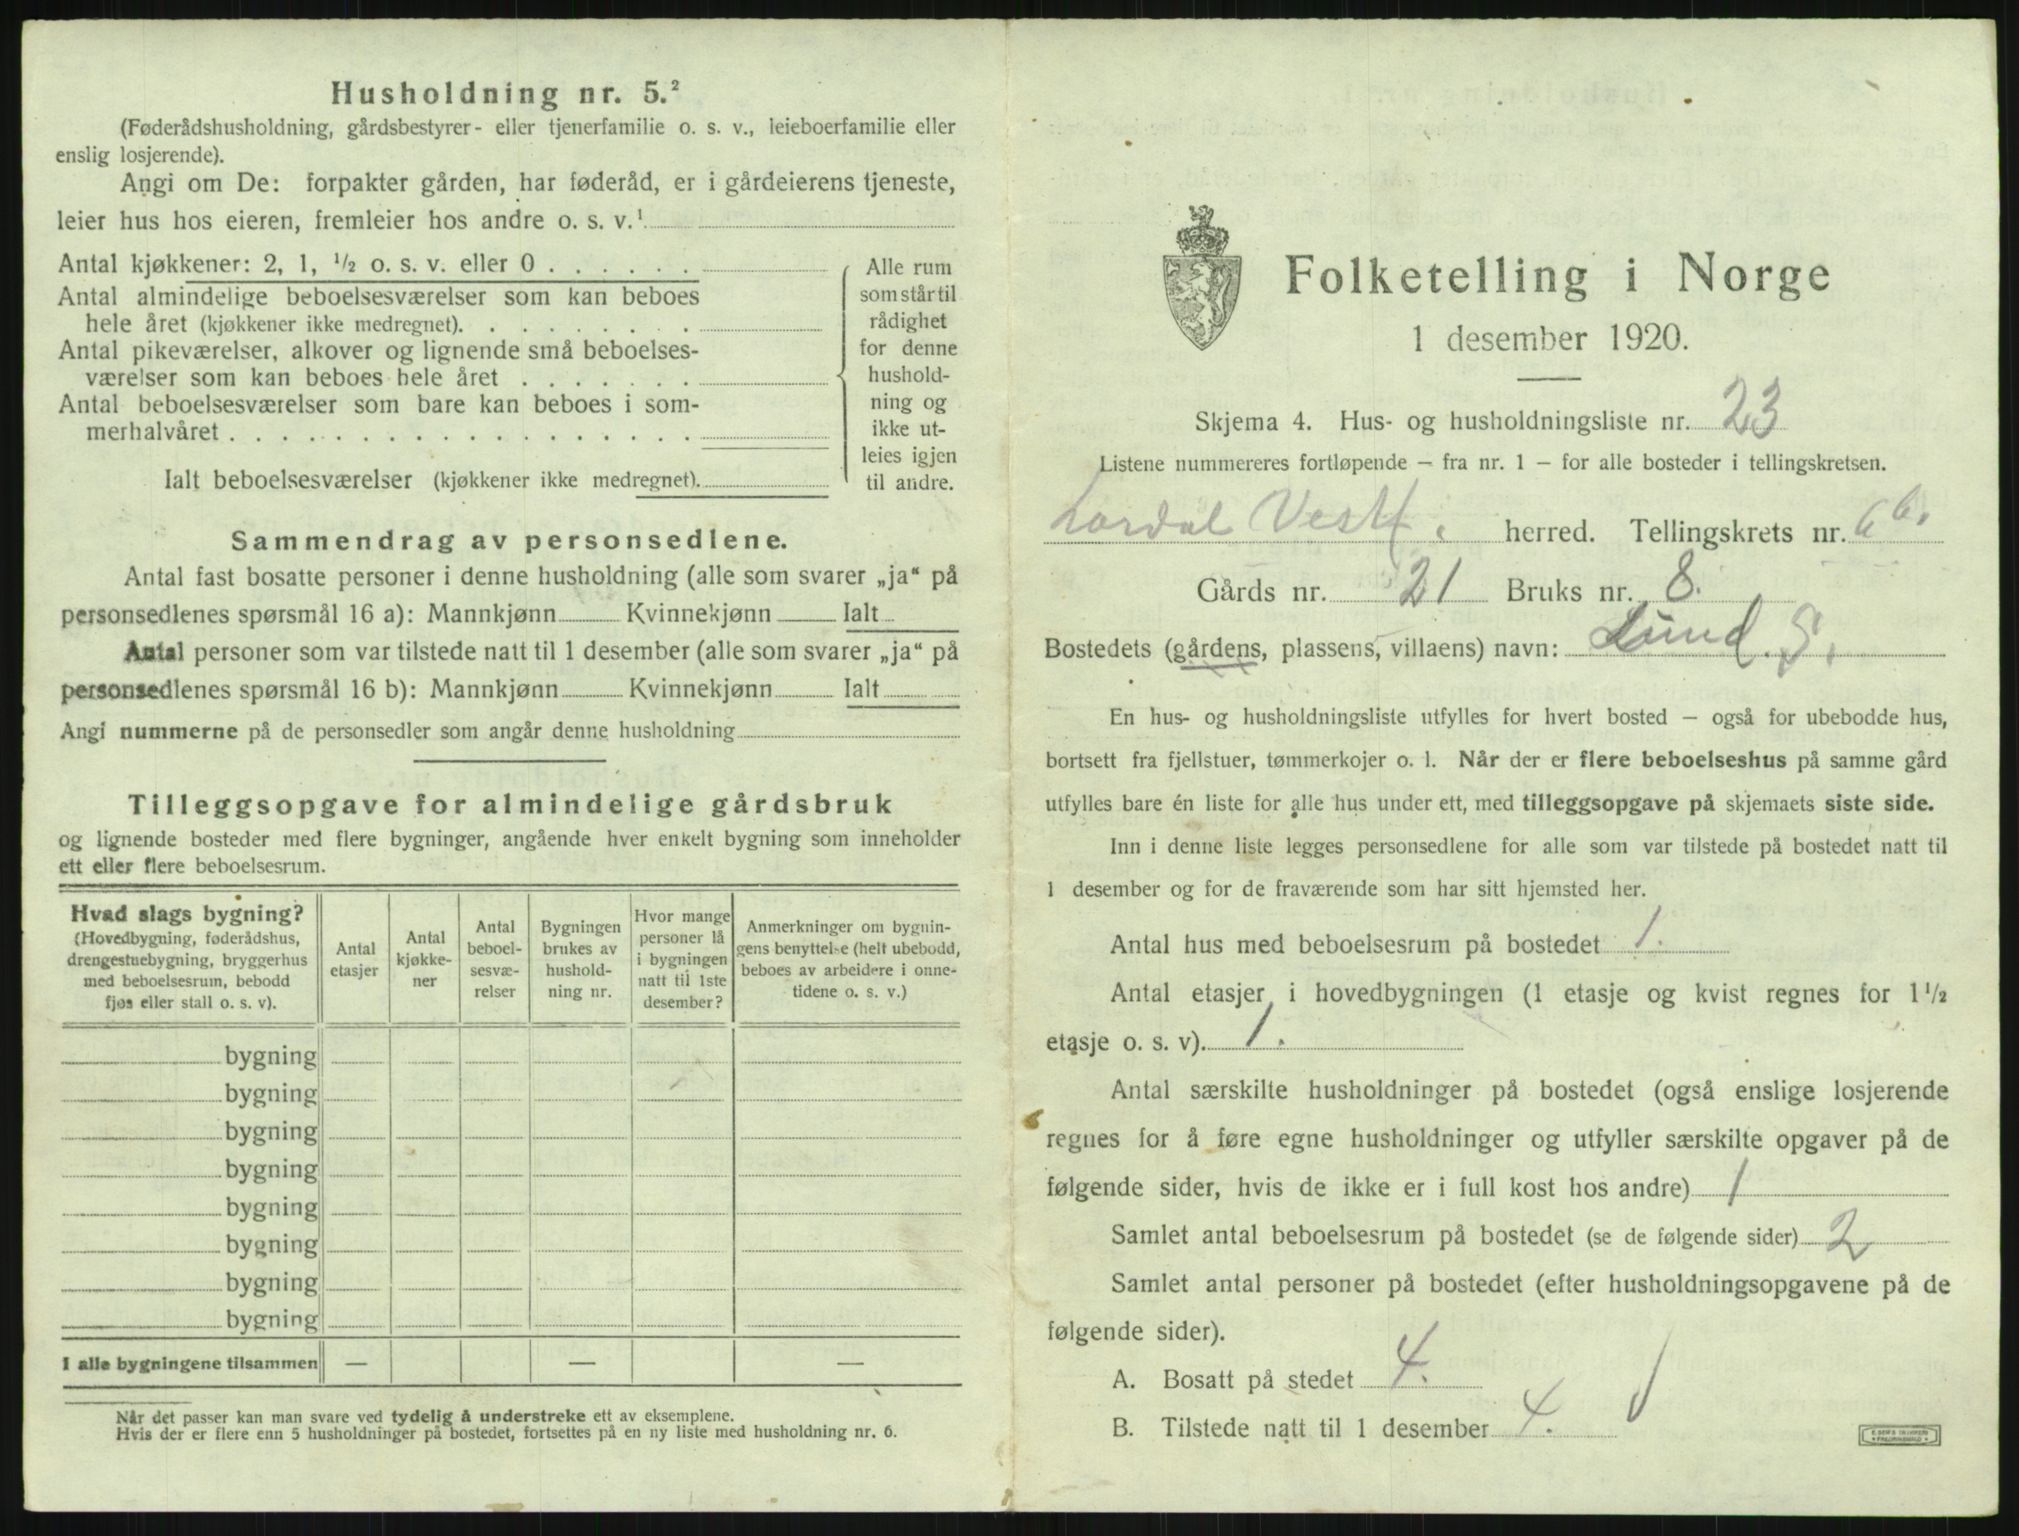 Husholdning nr. 5.²
(Føderådshusholdning, gårdsbestyrer- eller tjenerfamilie o. s. v., leieboerfamilie eller
enslig losjerende).
Angi om De: forpakter gården, har føderåd, er i gårdeierens tjeneste,
leier hus hos eieren, fremleier hos andre o. s. v.¹
Antal kjøkkener: 2, 1, ½ o. s. v. eller 0 . . . . . .
Antal almindelige beboelsesværelser som kan beboes
hele året (kjøkkener ikke medregnet). . . . . . . . .
Antal pikeværelser, alkover og lignende små beboelses-
værelser som kan beboes hele året . . . . . . .
Antal beboelsesværelser som bare kan beboes i som-
merhalvåret . . . . . . . . . . . . . . . . . .
Ialt beboelsesværelser (kjøkkener ikke medregnet).
Alle rum
som står til
rådighet
for denne
hushold-
ning og
ikke ut-
leies igjen
til andre.
Sammendrag av personsedlene.
Antal fast bosatte personer i denne husholdning (alle som svarer „ja“ på
personsedlenes spørsmål 16 a): Mannkjønn Kvinnekjønn Ialt
Antal personer som var tilstede natt til 1 desember (alle som svarer „ja“ på
personsedlenes spørsmål 16 b): Mannkjønn Kvinnekjønn Ialt
Angi nummerne på de personsedler som angår denne husholdning
Tilleggsopgave for almindelige gårdsbruk
og lignende bosteder med flere bygninger, angående hver enkelt bygning som inneholder
ett eller flere beboelsesrum.
Hvad slags bygning?
(Hovedbygning, føderådshus,
drengestuebygning, bryggerhus
med beboelsesrum, bebodd
fjøs eller stall o. s. v).
Antal
etasjer
Antal
kjøkke-
ner
Antal
beboel-
sesvæ-
relser
Bygningen
brukes av
hushold-
ning nr.
Hvor mange
personer lå
i bygningen
natt til 1ste
desember?
Anmerkninger om bygnin-
gens benyttelse (helt ubebodd,
beboes av arbeidere i onne-
tidene o. s. v.)
bygning
bygning
bygning
bygning
bygning
bygning
bygning
bygning
I alle bygningene tilsammen — — —
Når det passer kan man svare ved tydelig å understreke ett av eksemplene.
Hvis der er flere enn 5 husholdninger på bostedet, fortsettes på en ny liste med husholdning nr. 6.
Folketelling i Norge
1 desember 1920.
Skjema 4. Hus- og husholdningsliste nr. 23
Listene nummereres fortløpende — fra nr. 1 — for alle bosteder i tellingskretsen.
Lardal Vestf. herred. Tellingskrets nr. 6 b.
Gårds nr. 21 Bruks nr. 8.
Bostedets (gårdens, plassens, villaens) navn: Lund. S.
En hus- og husholdningsliste utfylles for hvert bosted — også for ubebodde hus,
bortsett fra fjellstuer, tømmerkojer o. l. Når der er flere beboelseshus på samme gård
utfylles bare én liste for alle hus under ett, med tilleggsopgave på skjemaets siste side.
Inn i denne liste legges personsedlene for alle som var tilstede på bostedet natt til
1 desember og for de fraværende som har sitt hjemsted her.
Antal hus med beboelsesrum på bostedet 1.
Antal etasjer i hovedbygningen (1 etasje og kvist regnes for 1½
etasje o. s. v). 1.
Antal særskilte husholdninger på bostedet (også enslige losjerende
regnes for å føre egne husholdninger og utfyller særskilte opgaver på de
følgende sider, hvis de ikke er i full kost hos andre) 1
Samlet antal beboelsesrum på bostedet (se de følgende sider) 2
Samlet antal personer på bostedet (efter husholdningsopgavene på de
følgende sider).
A. Bosatt på stedet 4.
B. Tilstede natt til 1 desember 4.